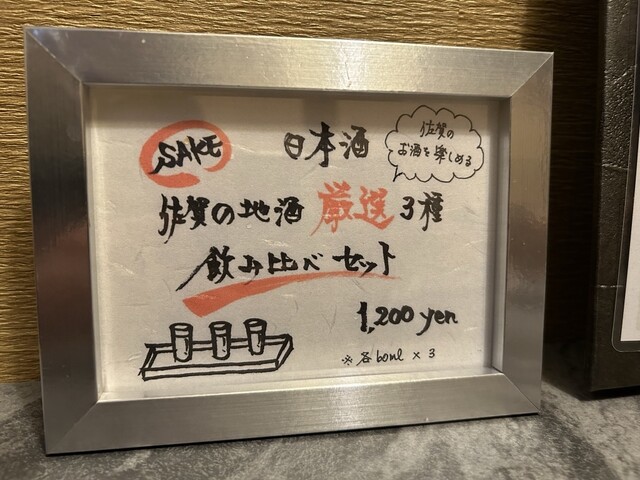 SAKE 日本酒
佐賀の
お酒を楽しめる
佐賀の地酒 厳選 3種
飲み比べセット
1,200 yen
※各60ml × 3